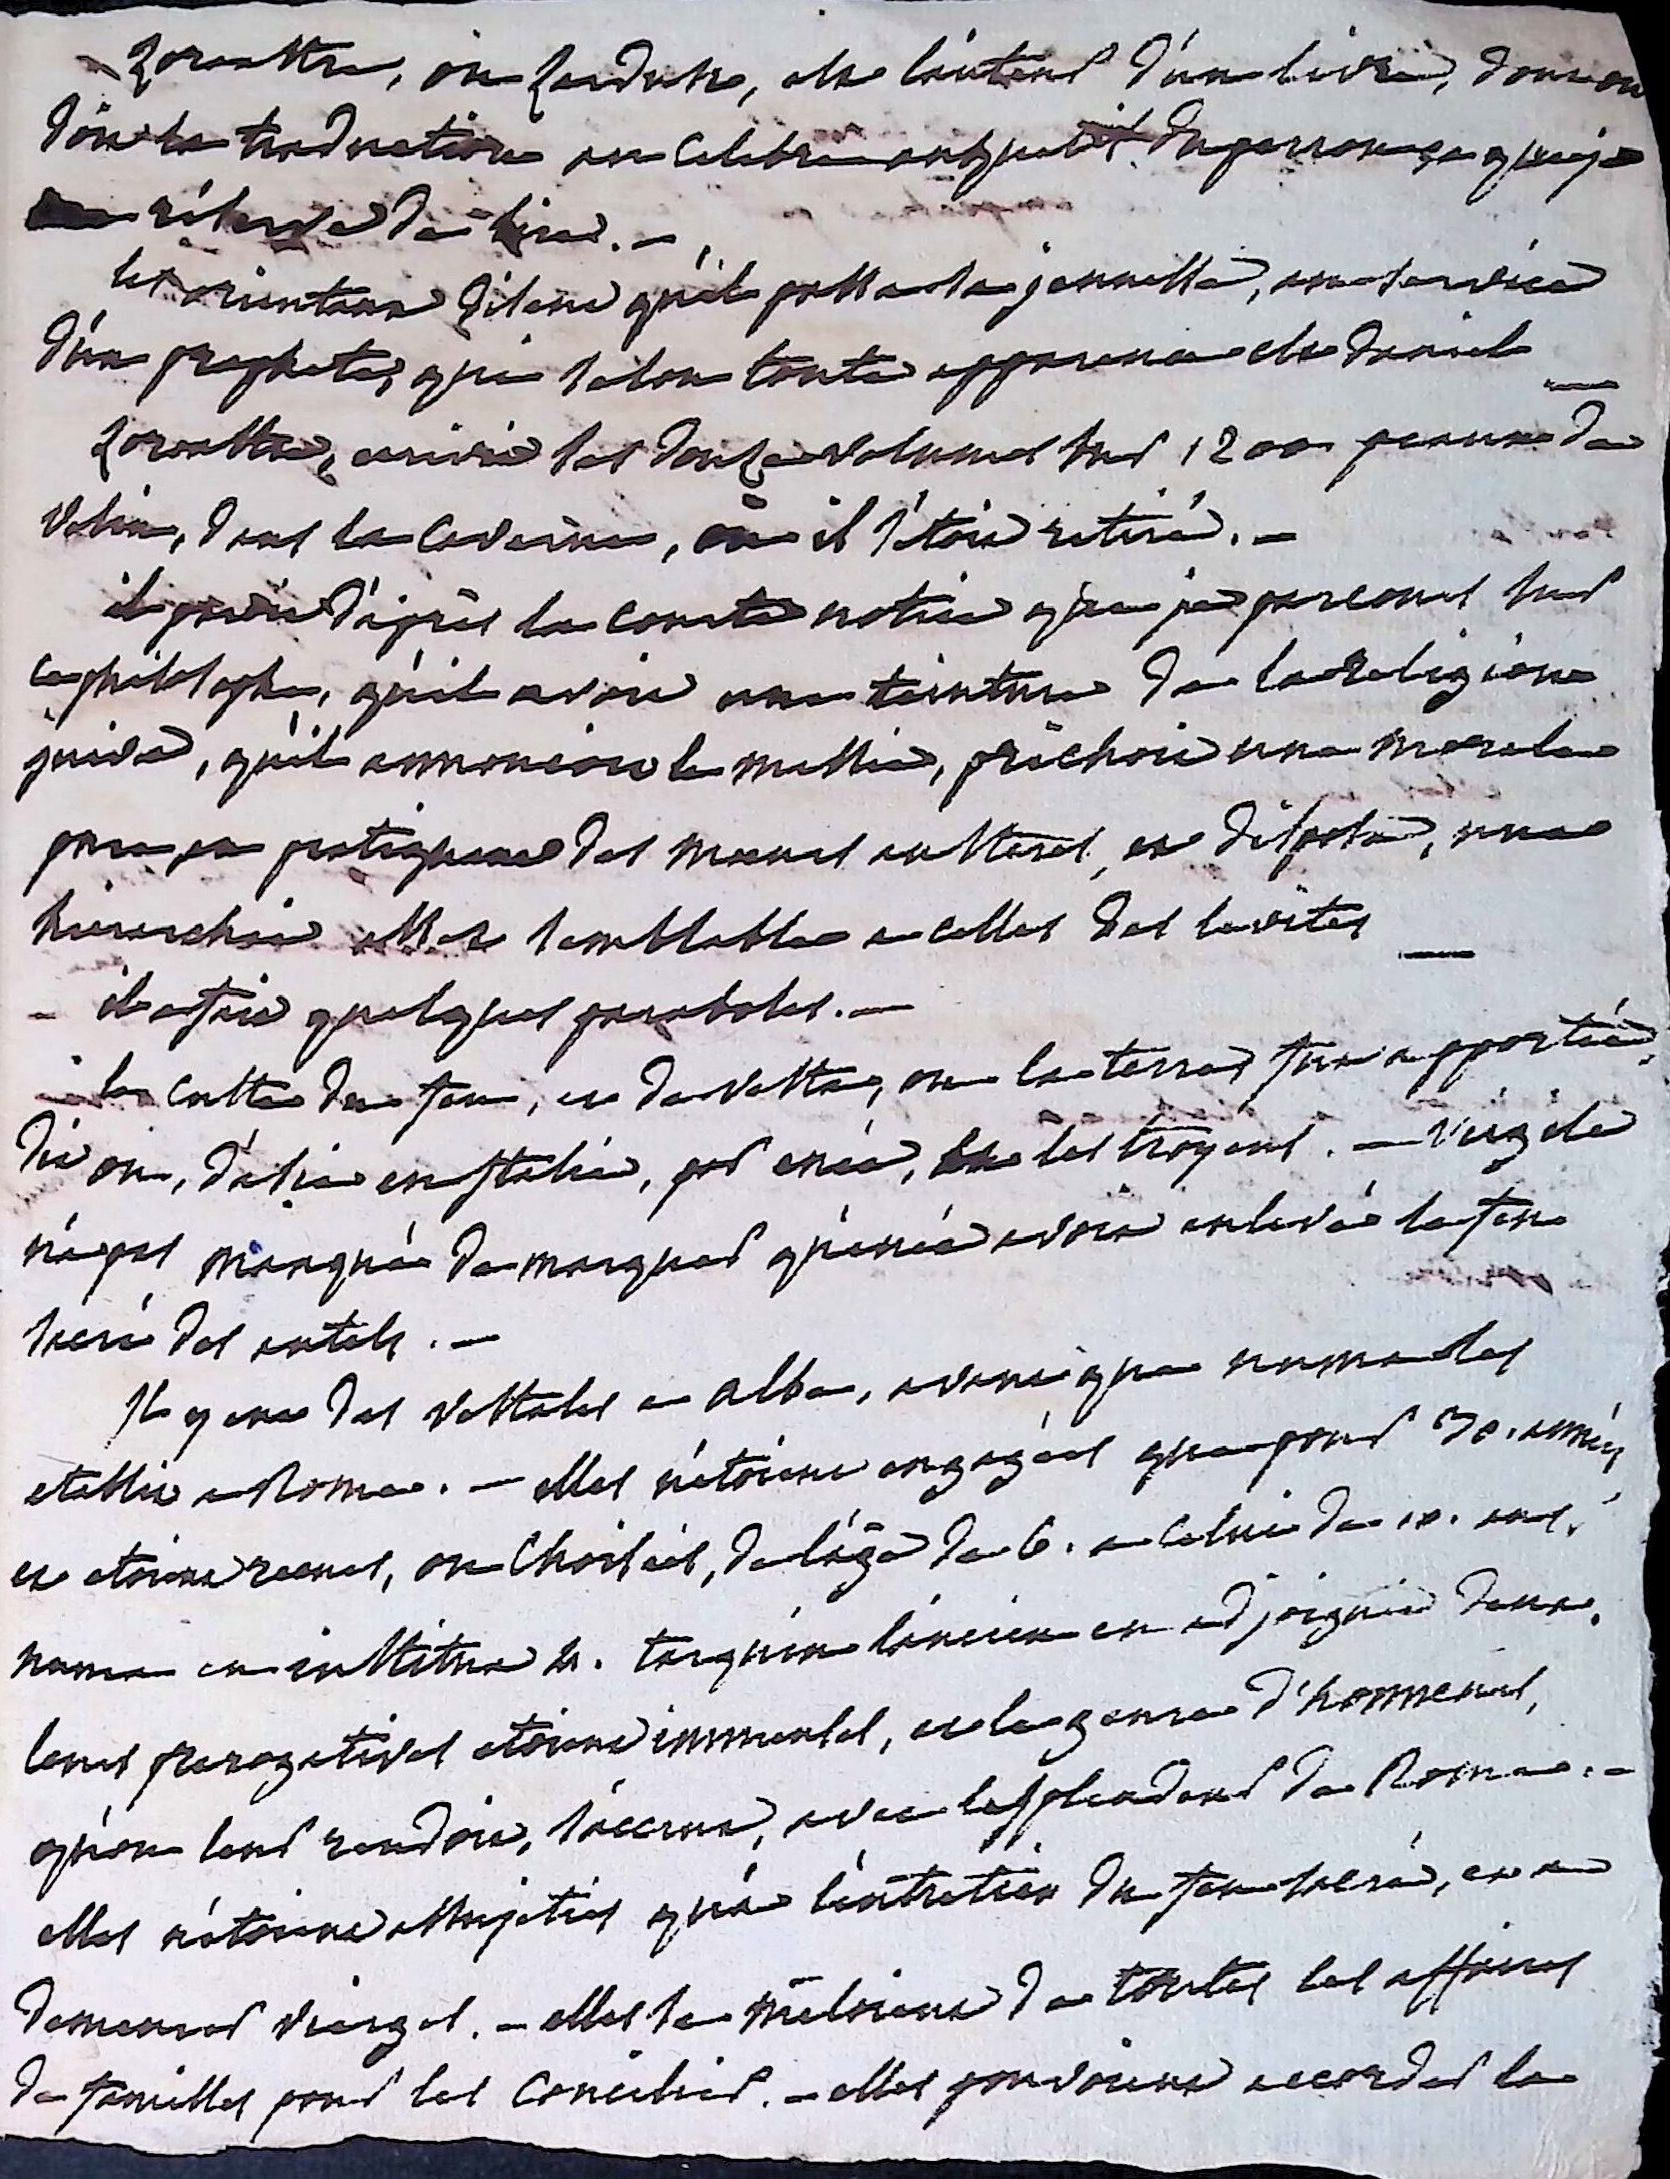 Zoroastre, ou Zerdust, est l'auteur d'un livre, dont on
doit la traduction au celebre anquetil du perron que je
me réserve de lire. -
les orientaux disent qu'il passa sa jeunesse, au service
d'un prophete, qui selon toute apparence est daniel —
Zoroastre, ecrivit ses douze volumes sur 1200 peaux de
velin, dans la caverne, où il s'étoit retiré. -
il paroit d'après la courte notice que je parcours sur
ce philosophe, qu'il avoit une teinture de la religion
juive, qu'il annoncoit le messie, prêchoit une morale
pure, en pratiquant des moeurs austeres, et disposa, une
hierarchie assez semblable a celles des levites —
- il a fait quelques paraboles. -
- le culte du feu, et de vesta, ou la terre fut apporté,
dit on, d'asie en Italie, par enée, et les troyens. - Virgile
n'a pas manqué de marquer qu'enée avoit enlevé le feu
sacré des autels. -
Il y eut des vestales a albe, avant que numa les
etablit a Rome. - elles n'étoient engagées que pour 30. années
et etoient recues, ou choisies, de l'âge de 6. a celui de 10. ans.
numa en institua 4. tarquin l'ancien en adjoignit deux.
leurs prerogatives etoient immenses, et le genre d'honneurs,
qu'on leur rendoit, s'accrut, avec la splendeur de Rome. -
elles n'étoient assujeties qu'à l'entretien du feu sacré, et a
demeurer vierges. - elles se mêloient de toutes les affaires
de familles pour les concilier. - elles pouvoient accorder la